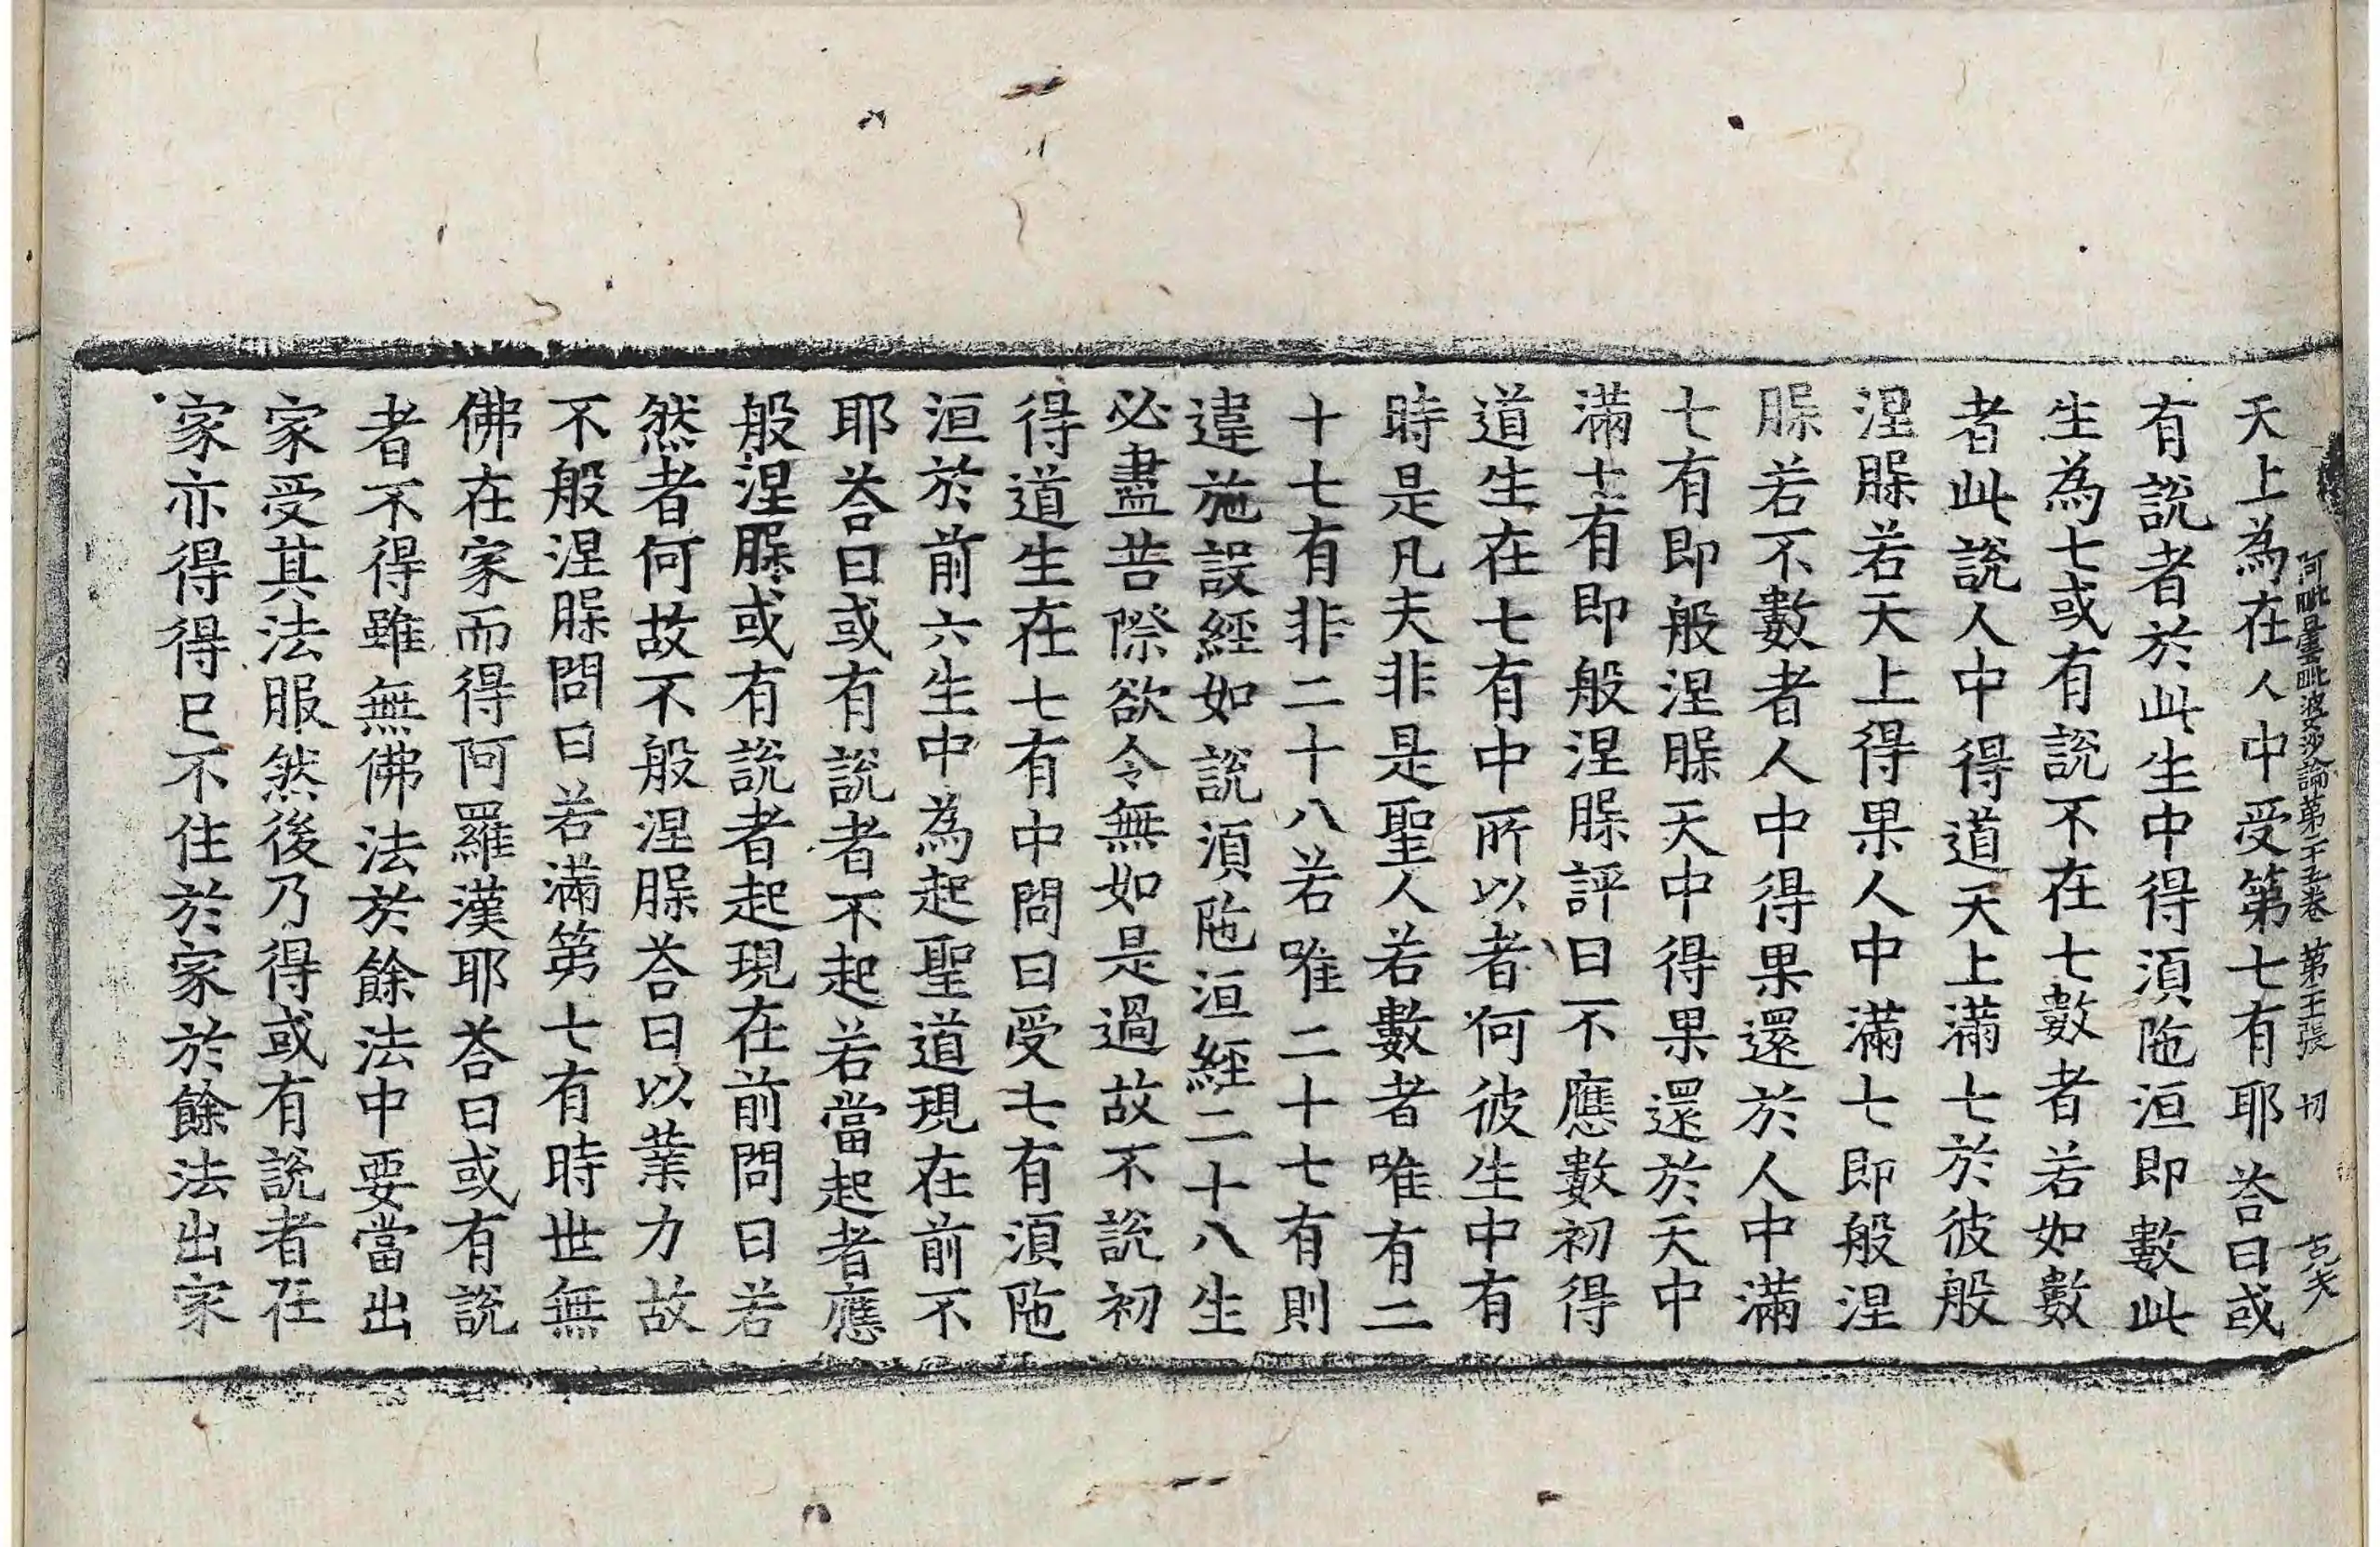 阿毗曇毗婆沙論第二十五卷 第二十張 切 克夫
天上為在人中受第七有耶荅曰或
有說者於此生中得湏陁洹即數此
生為七或有說不在七數者若如數
者此說人中得道天上滿七於彼般
涅槃若天上得果人中滿七即般涅
槃若不數者人中得果還於人中滿
七有即般涅槃天中得果還於天中
滿七有即般涅槃評曰不應數初得
道生在七有中所以者何彼生中有
時是凡夫非是聖人若數者唯有二
十七有非二十八若唯二十七有則
違施設經如說湏陁洹經二十八生
必盡苦際欲令無如是過故不說初
得道生在七有中問曰受七有湏陁
洹於前六生中為起聖道現在前不
耶荅曰或有說者不起若當起者應
般涅槃或有說者起現在前問曰若
然者何故不般涅槃荅曰以業力故
不般涅槃問曰若滿第七有時世無
佛在家而得阿羅漢耶荅曰或有說
者不得雖無佛法於餘法中要當出
家受其法服然後乃得或有說者在
家亦得得已不住於家於餘法出家